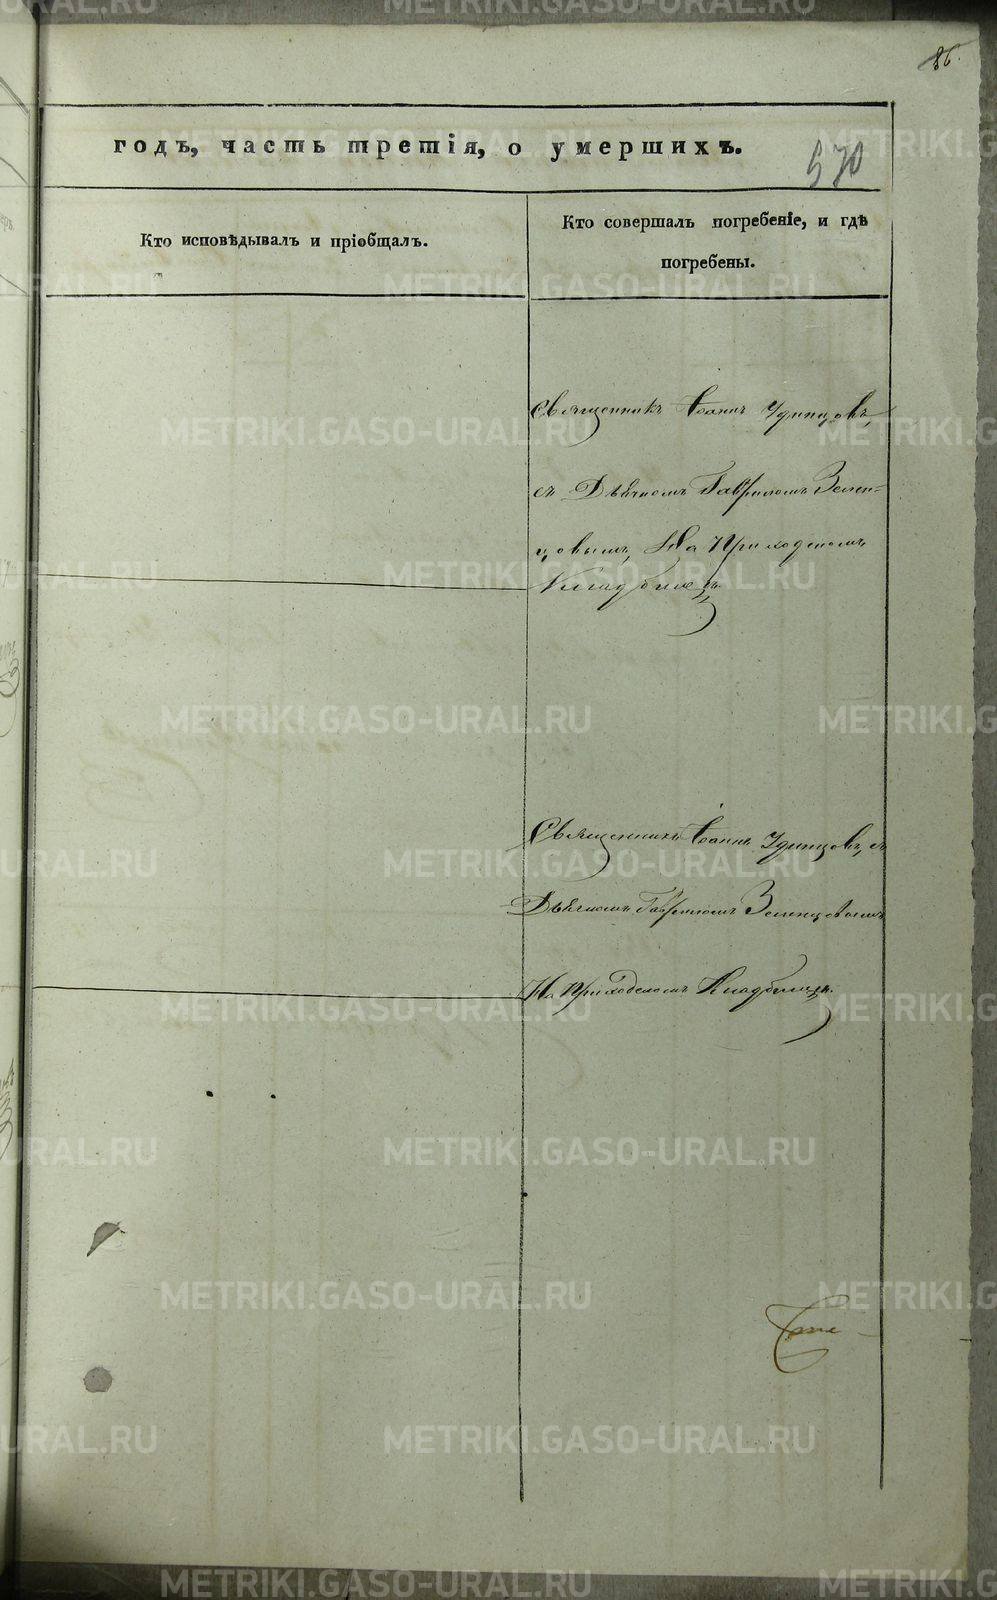 86.
годъ, часть третія, о умершихъ.
570
Кто исповѣдывалъ и пріобщалъ.
Кто совершалъ погребеніе, и гдѣ
погребены.
Священникъ Іоаннъ Удинцовъ,
съ Дьячкомъ Гавриломъ Зелен-
цовымъ, На Приходскомъ
Кладбищѣ.
Священникъ Іоаннъ Удинцовъ, съ
Дьячкомъ Гавриломъ Зеленцовымъ
На Приходскомъ Кладбищѣ.
METRIKI.GASO-URAL.RU